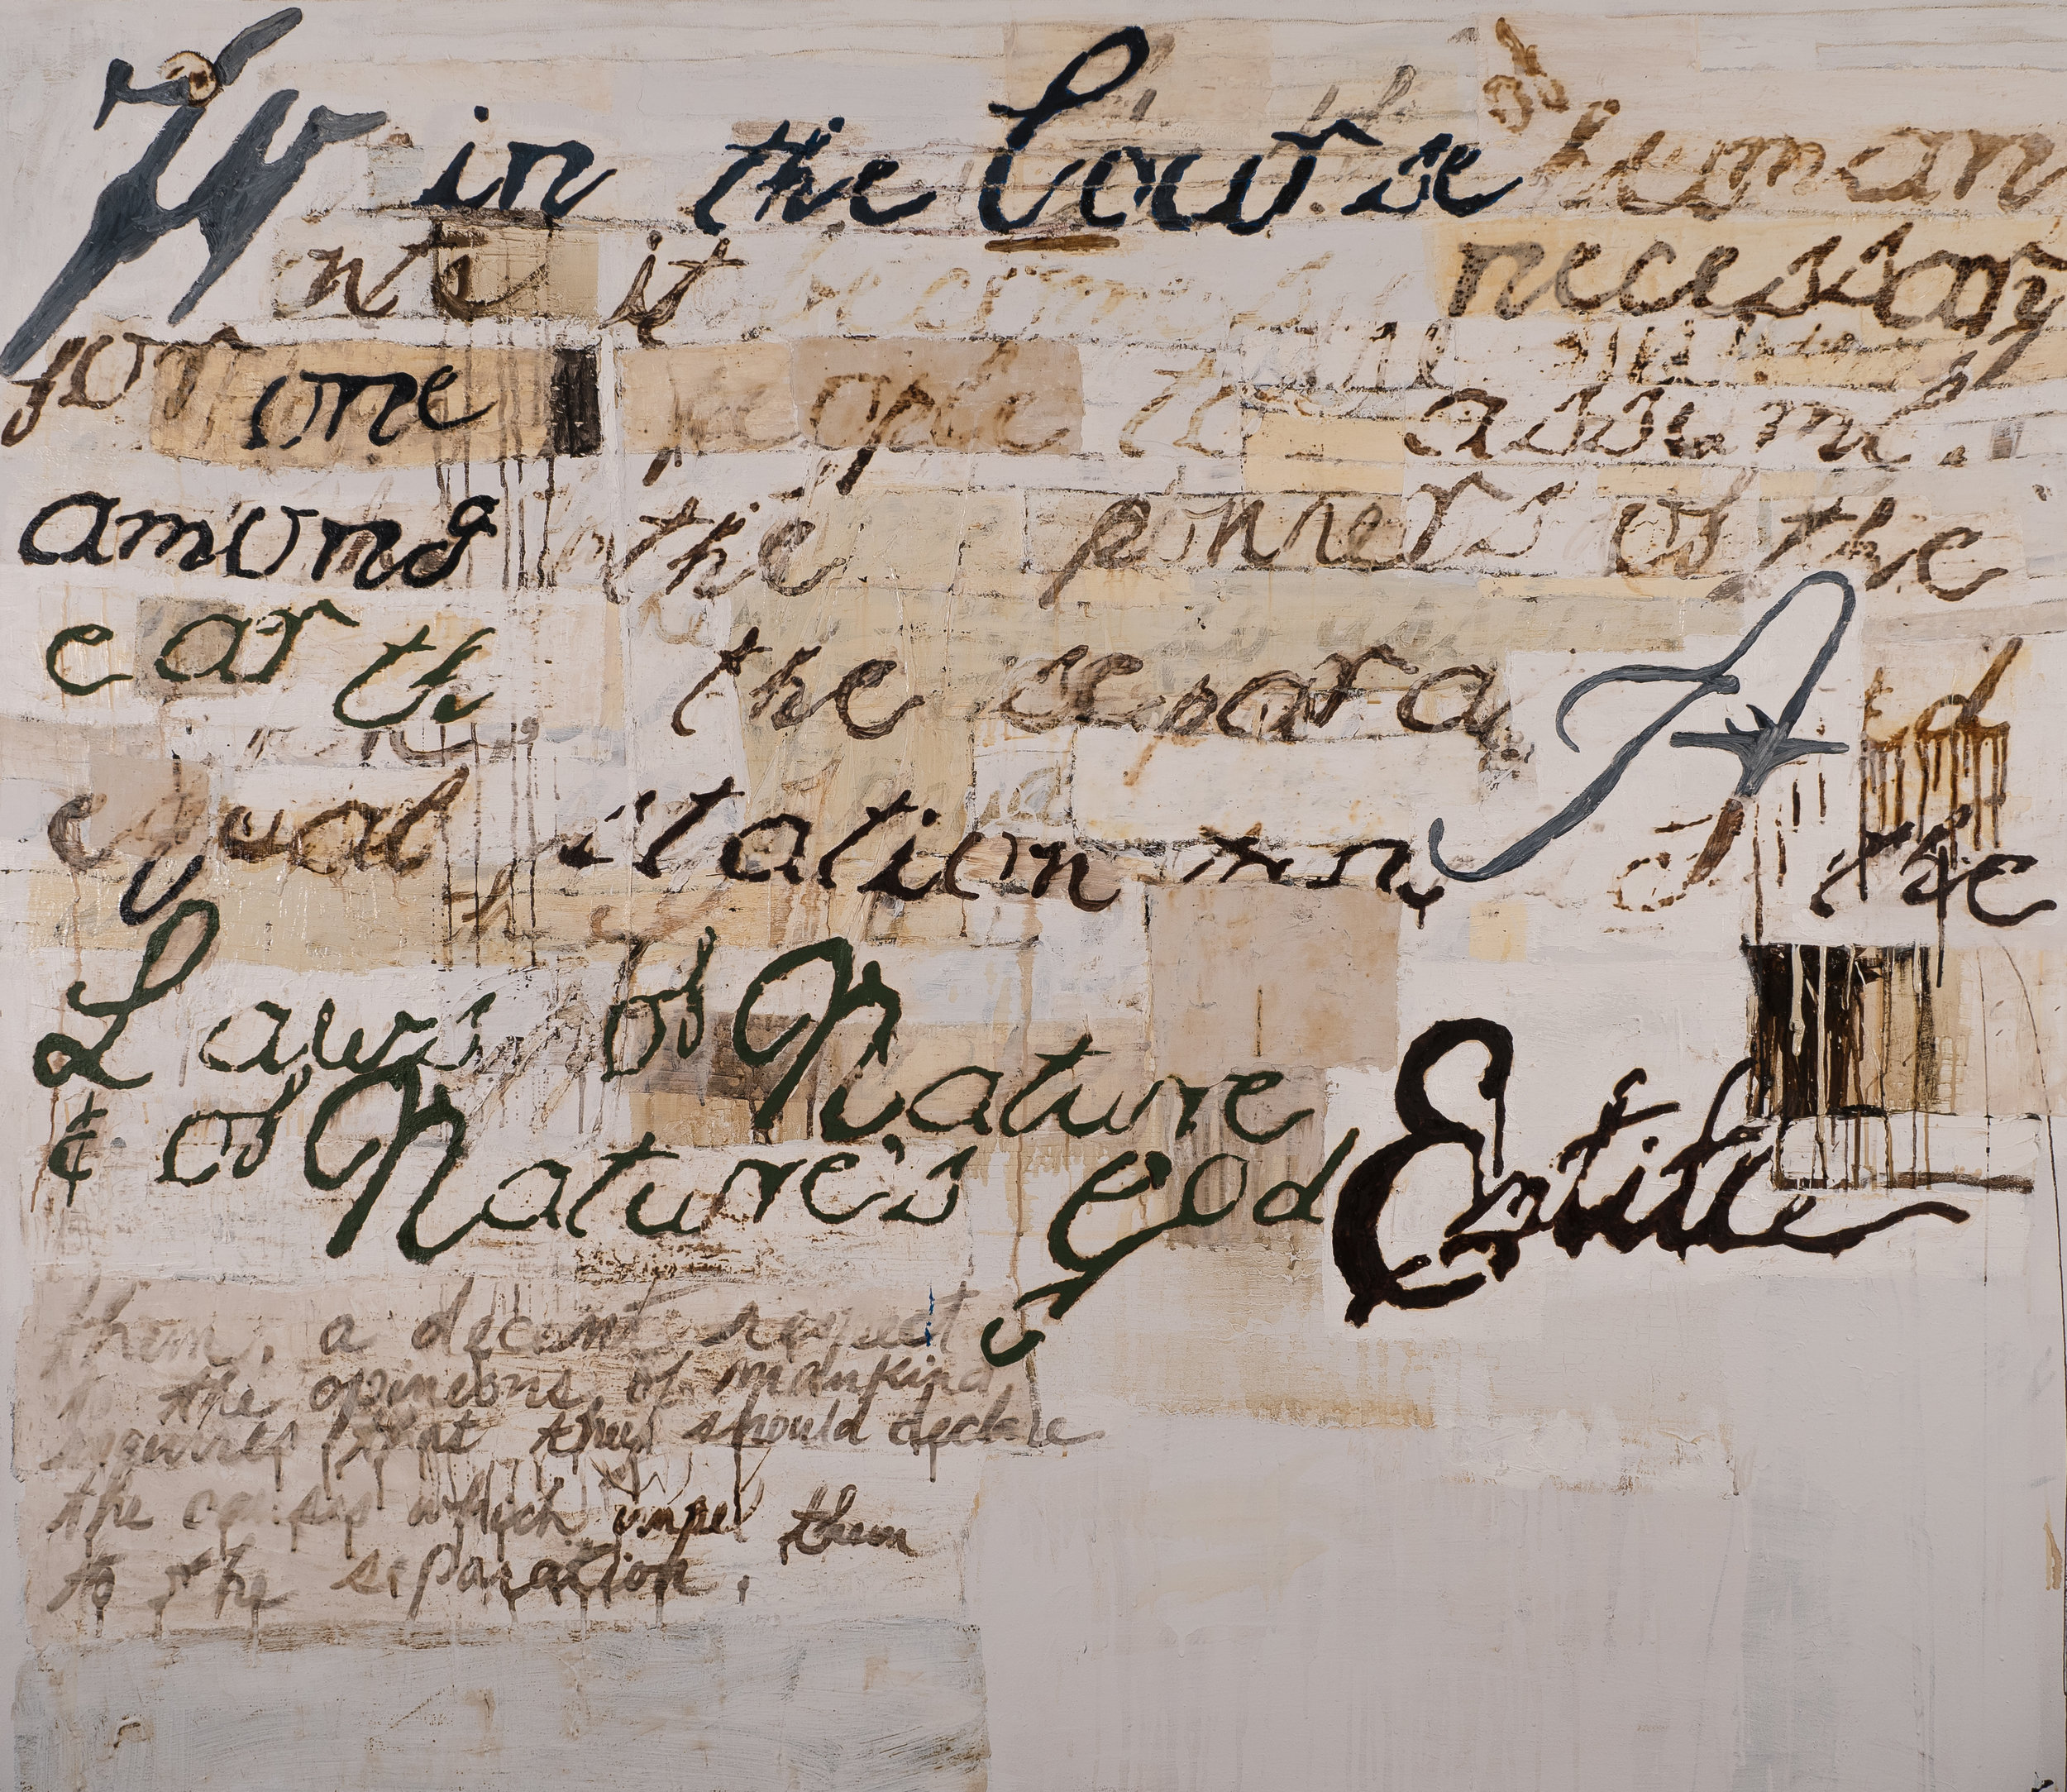 W in the Course of human
nts it becomes necessary
for one people to assume
among the powers of the
earth the separa A d
equal station the
Laws of Nature
& of Nature's God Entitle
them, a decent respect
to the opinions of mankind
requires that they should declare
the causes which impel them
to the separation.